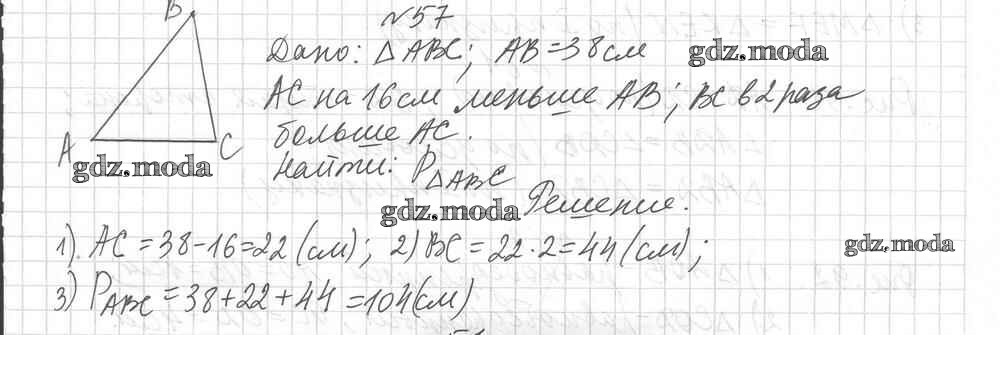 B
№57
Дано: △ABC; AB=38см
gdz.moda
AC на 16см меньше AB; BC в 2 раза
больше AC.
A
C
gdz.moda
Найти: P△ABC
gdz.moda
Решение.
1). AC = 38-16=22 (см); 2) BC = 22·2=44 (см);
gdz.moda
3) PABC = 38+22+44 =104(см)